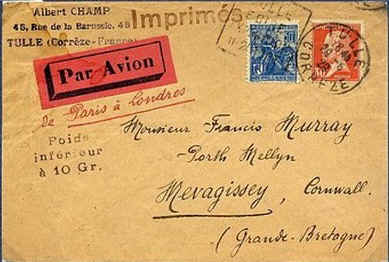 Albert CHAMP
45, Rue de la Barussie, 45
TULLE (Corrèze-France)
Imprimés
TULLE
CORREZE
Par Avion
de Paris à Londres
Poids
inférieur
à 10 Gr.
Monsieur Francis Murray
Porth Mellyn
Mevagissey, Cornwall.
(Grande-Bretagne)